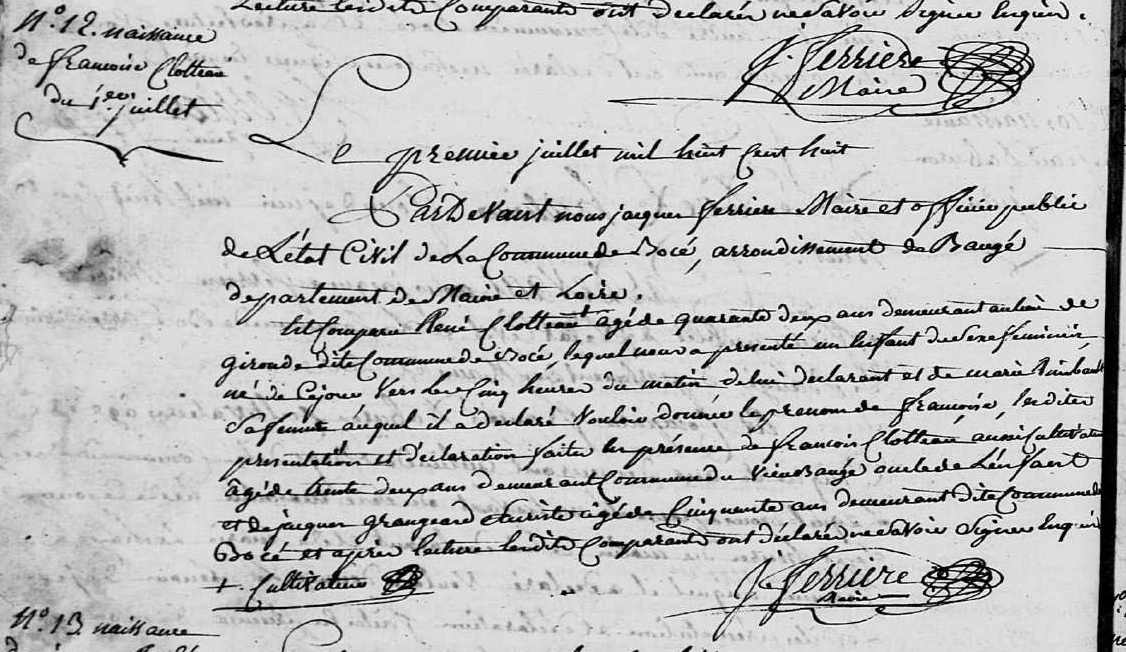 Lecture lesdits Comparants ont déclarés ne savoir Signer Enquis.
J. Ferrière
Maire
N.º 12. naissance
de françoise Clotteau
du 1.er juillet
Le premier juillet mil huit Cent huit
Par Devant nous jacques ferriere Maire et officier public
de L'état Civil de La Commune de Bocé, arrondissement de Baugé
departement de Maine et Loire.
Est Comparu René Clotteau + âgé de quarante deux ans demeurant au lieu de
gironde dite Commune de Bocé, lequel nous a presenté un Enfant du Sexe feminin,
né de Cejour vers Les Cinq heures du matin de lui declarant et de marie
Sa femme auquel il a declaré Vouloir donner le prenom de françoise, lesdites
presentation et déclaration faites En présence de françois Clotteau aussi Cultivateur
âgé de trente deux ans demeurant Commune du Vieu Baugé oncle de L'enfant
et de jacques grangeard âgé de Cinquante ans demeurant dite Commune de
Bocé et après lecture lesdits Comparants ont déclaré ne savoir Signer Enquis
+ Cultivateur
J. Ferrière
Maire
N.º 13. naissance